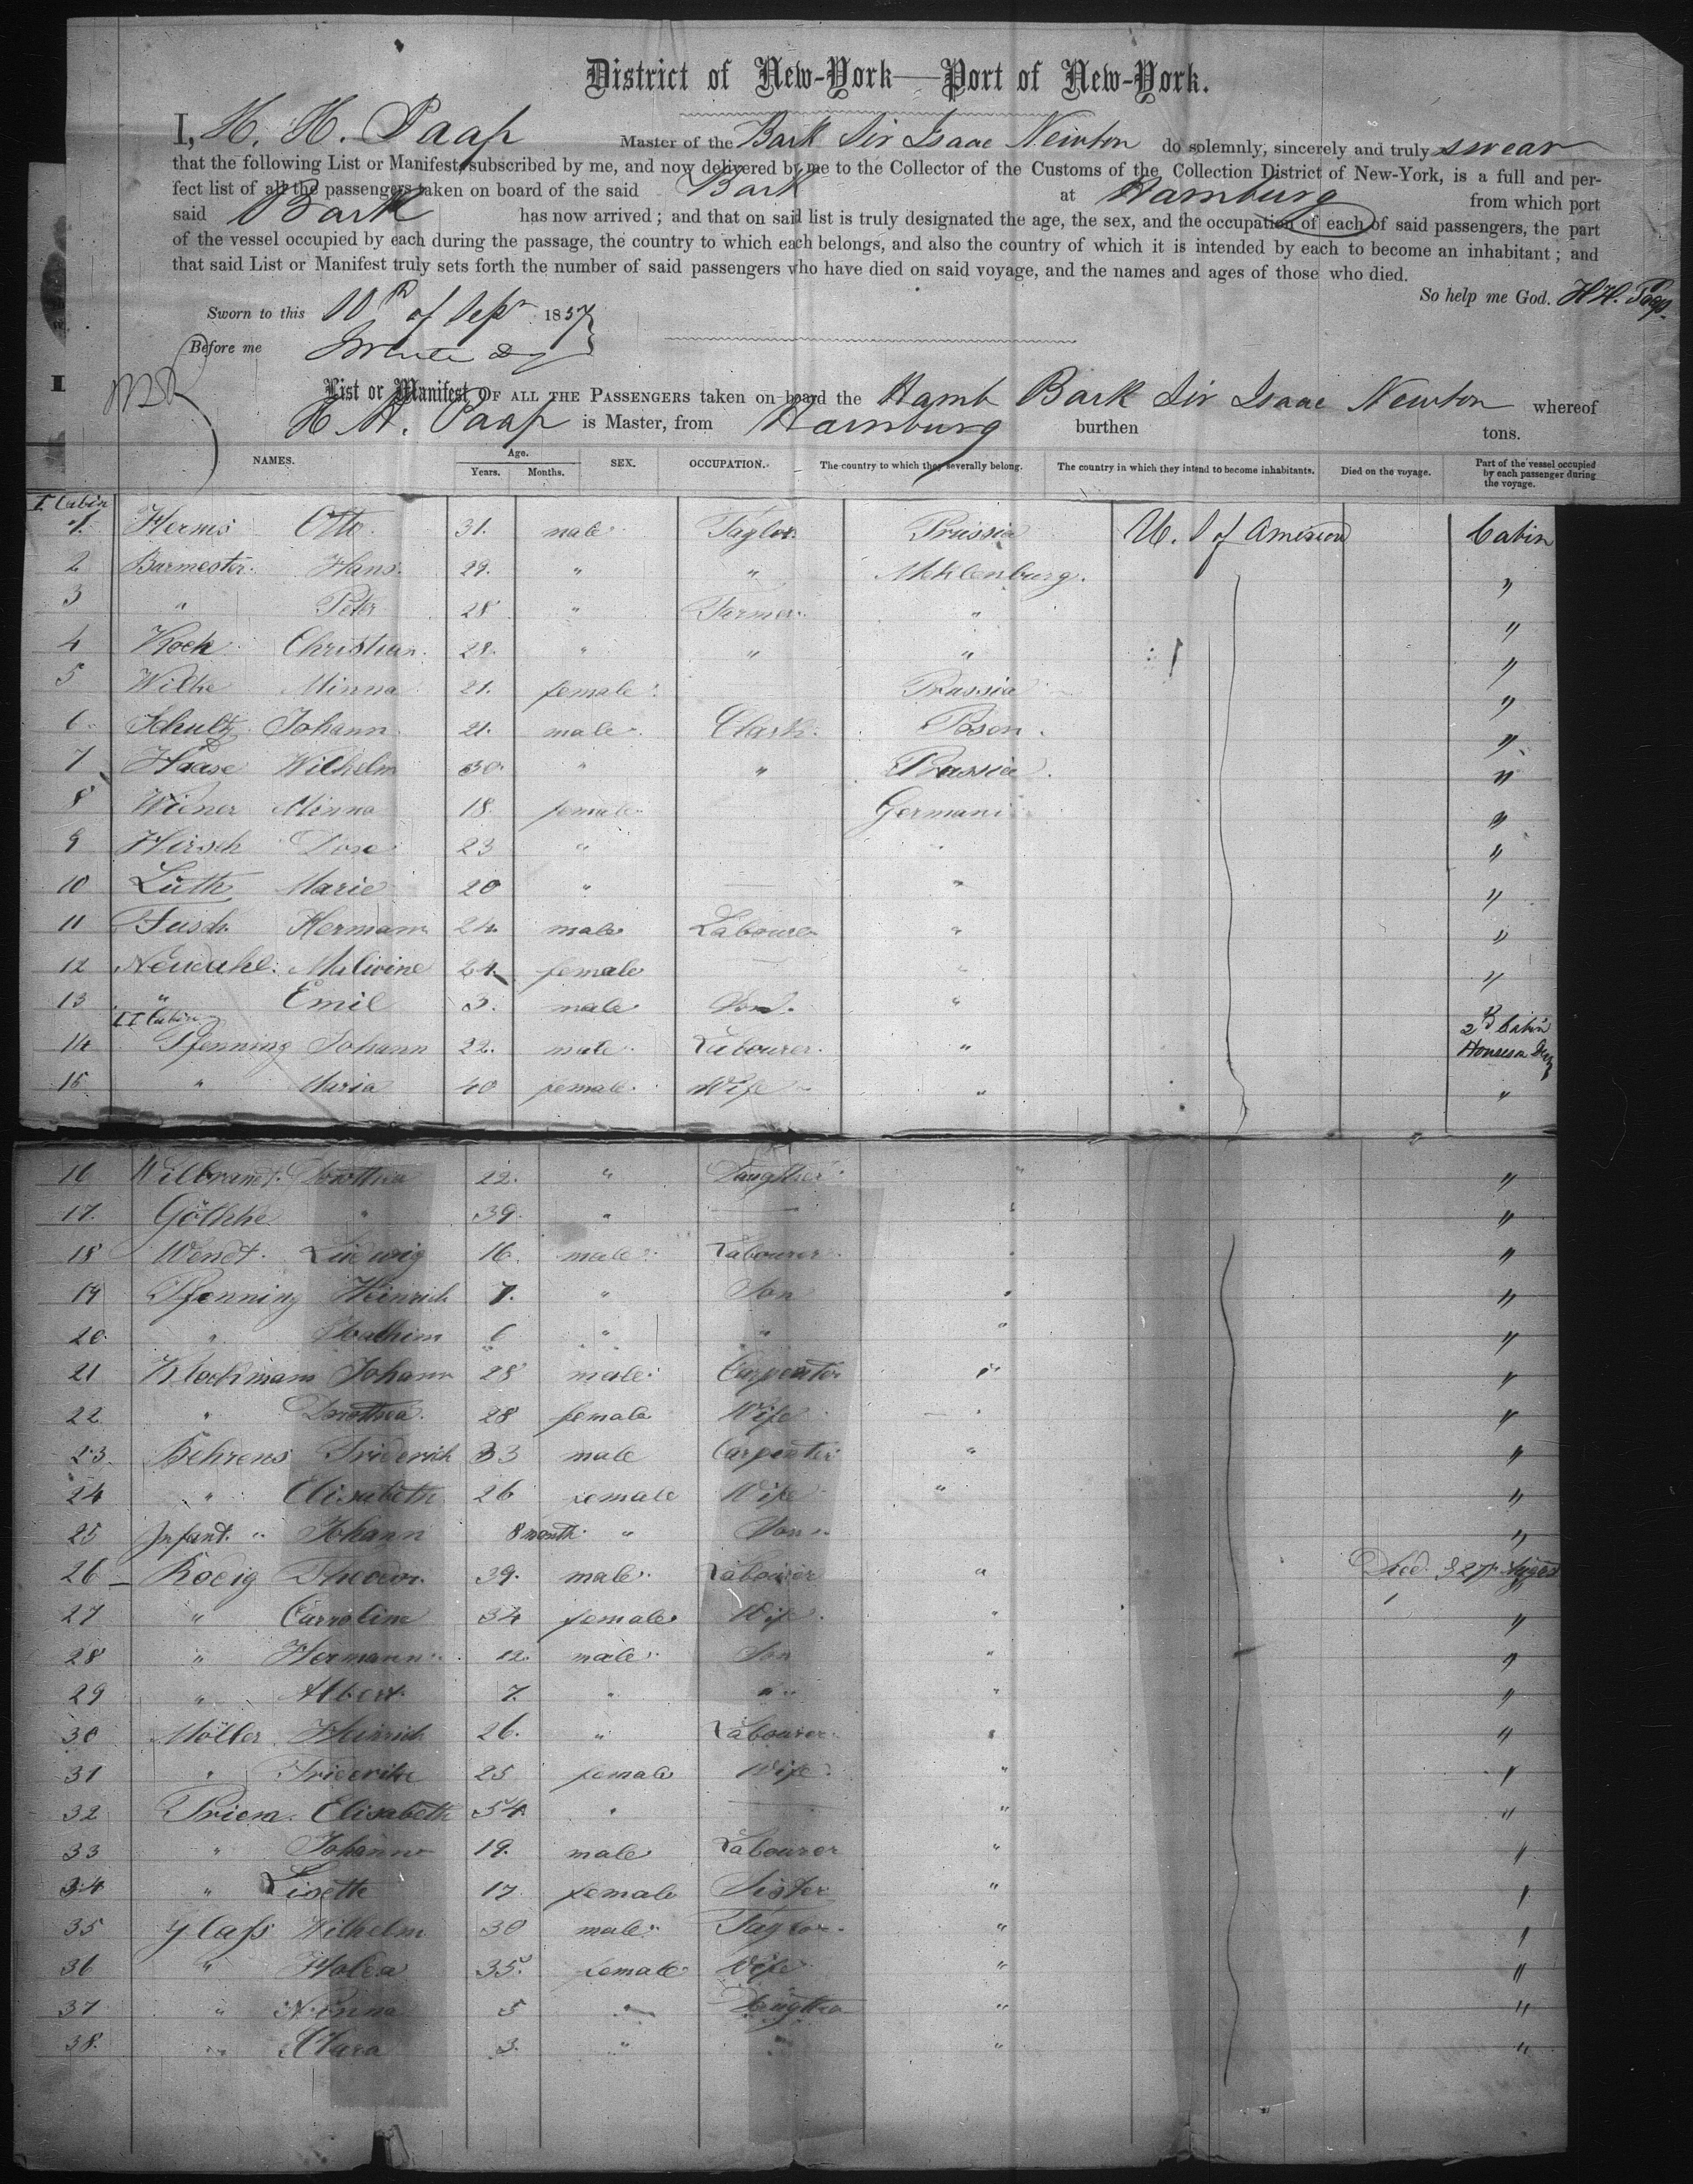 District of New-York—Port of New-York.
I, H. H. Paap Master of the Bark Sir Isaac Newton do solemnly, sincerely and truly swear
that the following List or Manifest, subscribed by me, and now delivered by me to the Collector of the Customs of the Collection District of New-York, is a full and per-
fect list of all the passengers taken on board of the said Bark at Hamburg from which port
said Bark has now arrived; and that on said list is truly designated the age, the sex, and the occupation of each of said passengers, the part
of the vessel occupied by each during the passage, the country to which each belongs, and also the country of which it is intended by each to become an inhabitant; and
that said List or Manifest truly sets forth the number of said passengers who have died on said voyage, and the names and ages of those who died.
So help me God. H H. Paap.
Sworn to this 10th of Sepr 1857
Before me
List or Manifest OF ALL THE PASSENGERS taken on board the Hamb Bark Sir Isaac Newton whereof
H H. Paap is Master, from Hamburg burthen tons.
NAMES. Age. Years. Months. SEX. OCCUPATION. The country to which they severally belong. The country in which they intend to become inhabitants. Died on the voyage. Part of the vessel occupied by each passenger during the voyage.
I Cabin
1. Herms Otto. 31. male Taylor. Prussia U. S of America Cabin
2 Burmester. Hans. 29. " " Meklenburg. "
3 " Peter 28 " Farmer. " "
4 Kock Christian. 28. " " " "
5 Wilke Minna 21. female. Prussia "
6. Schultz Johann 21. male. Clark. Posen. "
7 Haase Wilhelm 30. " " Prussia. "
8 Wiener Minna 18. female. Germani "
9 Hirsch Dore 23 " " "
10 Lüth Marie 20 " — " "
11 Fusch. Hermann 24. male Labourer " "
12 Neudahl. Malwine 24. female — " "
13 " Emil 3. male Son. "
II Cabin 2d Cabin
14 Pfenning Johann 22. male. Labourer. " Houseon Deck
15 " Maria 40 female. Wife " "
16 Wilbrandt. Dorothea 22. " Daugther. " "
17. Gölkke " 39. " — " "
18 Wendt. Ludwig 16. male. Labourer. " "
19 Pfenning Heinrich 7. " Son " "
20. " Joachim 6 " " " "
21 Klockmann Johann 28 male. Carpenter " "
22 " Dorothea. 28 female Wife " "
23. Behrens Friderich 33 male Carpenter " "
24 " Elisabeth 26 female Wife " "
25 Infant. " Johann 8 month. " Son. "
26 – Roeig Theodor. 39. male. Labourer " Died. 27
27 " Carroline 34 female Wife. " "
28 " Hermann. 12. male. Son " "
29 " Albert. 7. " " " "
30 Möller Heinrich 26. " Labourer. " "
31 " Friderike 25 female Wife. " "
32 Priem. Elisabeth 54. " — " "
33 " Johann 19. male Labourer " "
34 " Lisette 17. female Sister " "
35 Glass Wilhelm 30 male. Taylor. " "
36 " Hulda 35. female Wife " "
37 " Minna 5 " Daugther " "
38. " Clara 3. " " " "